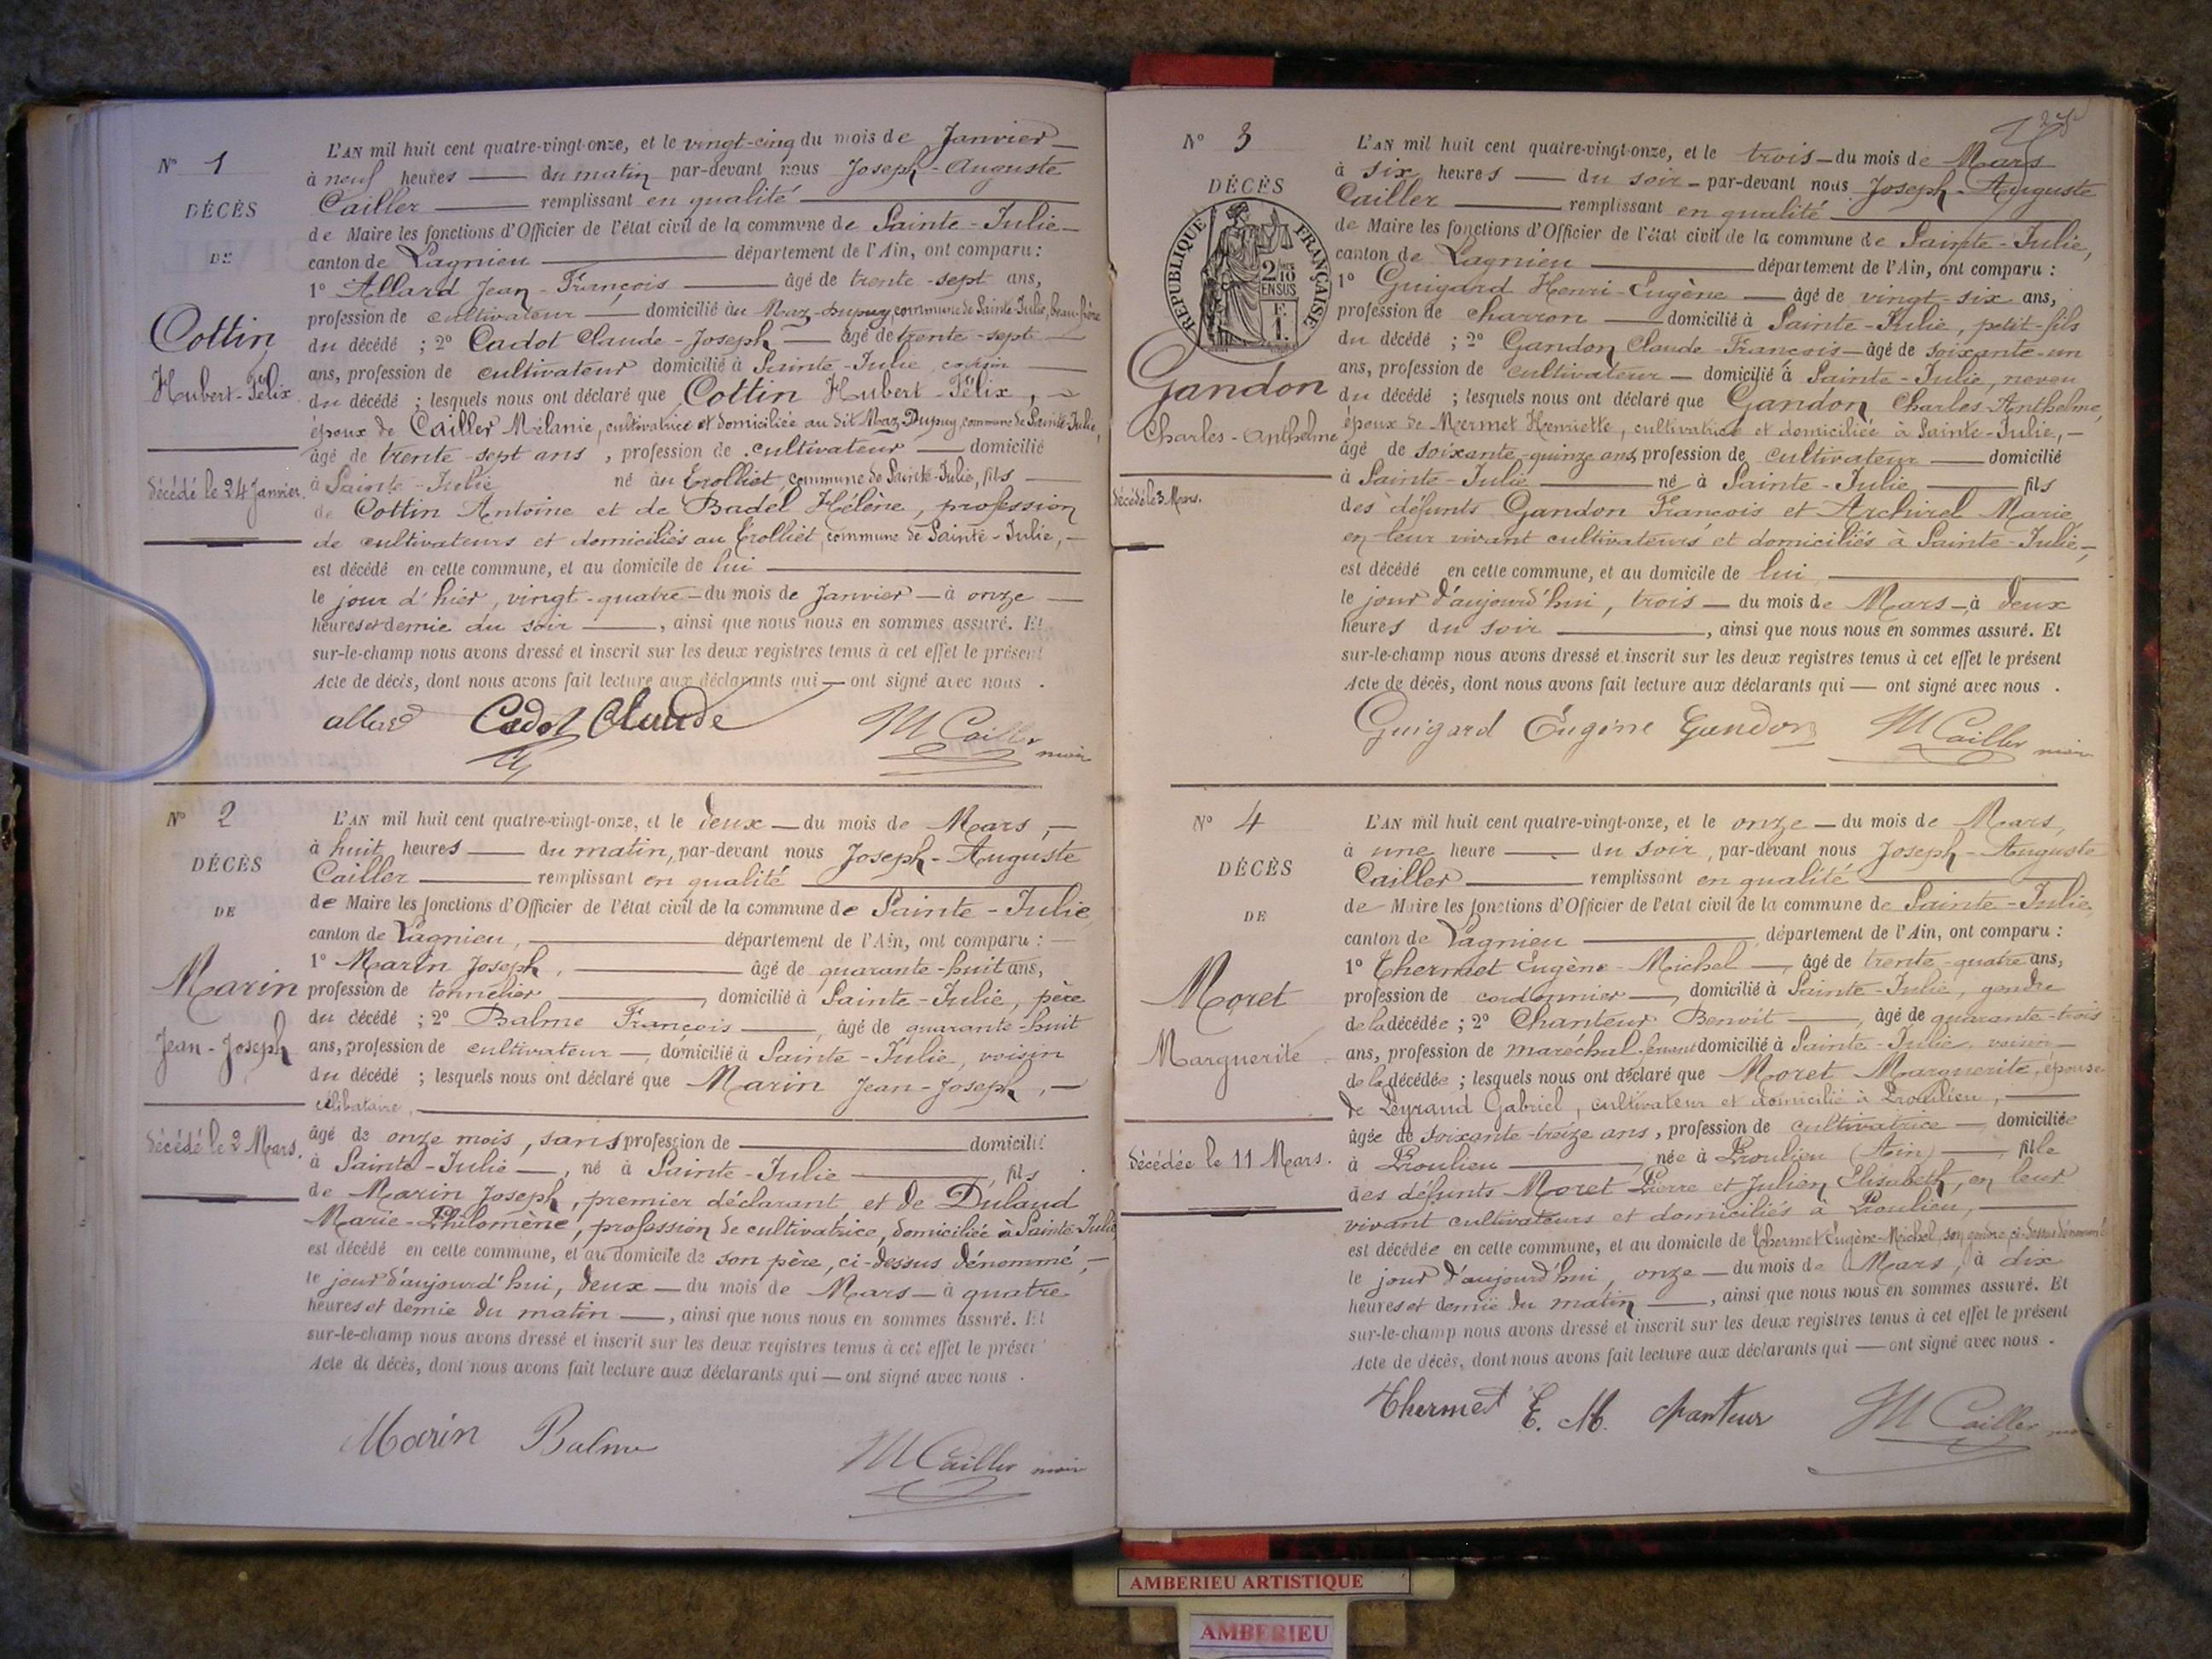 N° 1
DÉCÈS
DE
Cottin
Hubert-Félix
décédé le 24 Janvier.
L'AN mil huit cent quatre-vingt-onze, et le vingt-cinq du mois de Janvier
à neuf heures du matin par-devant nous Joseph-Auguste
Cailler remplissant en qualité
de Maire les fonctions d'Officier de l'état civil de la commune de Sainte-Julie
canton de Lagnieu département de l'Ain, ont comparu :
1° Allard Jean-François âgé de trente-sept ans,
profession de cultivateur domicilié au Maz-Dupuy, commune de Sainte-Julie, beau-frère
du décédé ; 2° Cadot Claude-Joseph âgé de trente-sept
ans, profession de cultivateur domicilié à Sainte-Julie, cousin
du décédé ; lesquels nous ont déclaré que Cottin Hubert-Félix,
époux de Cailler Mélanie, cultivatrice et domiciliée au dit Maz-Dupuy, commune de Sainte-Julie,
âgé de trente-sept ans, profession de cultivateur domicilié
à Sainte-Julie né au Trolliet, commune de Sainte-Julie, fils
de Cottin Antoine et de Badel Hélène, profession
de cultivateurs et domiciliés au Trolliet, commune de Sainte-Julie,
est décédé en cette commune, et au domicile de lui
le jour d'hier, vingt-quatre du mois de Janvier à onze
heures et demie du soir, ainsi que nous nous en sommes assuré. Et
sur-le-champ nous avons dressé et inscrit sur les deux registres tenus à cet effet le présent
Acte de décès, dont nous avons fait lecture aux déclarants qui ont signé avec nous.
allard Cadot Claude Cailler maire
N° 2
DÉCÈS
DE
Marin
Jean-Joseph
décédé le 2 Mars.
L'AN mil huit cent quatre-vingt-onze, et le deux du mois de Mars,
à huit heures du matin, par-devant nous Joseph-Auguste
Cailler remplissant en qualité
de Maire les fonctions d'Officier de l'état civil de la commune de Sainte-Julie
canton de Lagnieu, département de l'Ain, ont comparu :
1° Marin Joseph, âgé de quarante-huit ans,
profession de tonnelier, domicilié à Sainte-Julie, père
du décédé ; 2° Balme François, âgé de quarante-huit
ans, profession de cultivateur, domicilié à Sainte-Julie, voisin
du décédé ; lesquels nous ont déclaré que Marin Jean-Joseph,
célibataire,
âgé de onze mois, sans profession de domicilié
à Sainte-Julie, né à Sainte-Julie, fils
de Marin Joseph, premier déclarant et de Dulaud
Marie-Philomène, profession de cultivatrice, domiciliée à Sainte-Julie
est décédé en cette commune, et au domicile de son père, ci-dessus dénommé,
le jour d'aujourd'hui, deux du mois de Mars à quatre
heures et demie du matin, ainsi que nous nous en sommes assuré. Et
sur-le-champ nous avons dressé et inscrit sur les deux registres tenus à cet effet le présent
Acte de décès, dont nous avons fait lecture aux déclarants qui ont signé avec nous.
Marin Balme Cailler maire
N° 3
DÉCÈS
RÉPUBLIQUE FRANÇAISE
2/10
EN SUS
Gandon
Charles-Anthelme
décédé le 3 Mars.
L'AN mil huit cent quatre-vingt-onze, et le trois du mois de Mars
à six heures du soir par-devant nous Joseph-Auguste
Cailler remplissant en qualité
de Maire les fonctions d'Officier de l'état civil de la commune de Sainte-Julie,
canton de Lagnieu département de l'Ain, ont comparu :
1° Guigard Henri-Eugène âgé de vingt-six ans,
profession de charron domicilié à Sainte-Julie, petit-fils
du décédé ; 2° Gandon Claude-François âgé de soixante-un
ans, profession de cultivateur domicilié à Sainte-Julie, neveu
du décédé ; lesquels nous ont déclaré que Gandon Charles-Anthelme,
époux de Mermet Henriette, cultivatrice et domiciliée à Sainte-Julie,
âgé de soixante-quinze ans, profession de cultivateur domicilié
à Sainte-Julie né à Sainte-Julie fils
des défunts Gandon François et Archirel Marie
en leur vivant cultivateurs et domiciliés à Sainte-Julie,
est décédé en cette commune, et au domicile de lui
le jour d'aujourd'hui, trois du mois de Mars à deux
heures du soir, ainsi que nous nous en sommes assuré. Et
sur-le-champ nous avons dressé et inscrit sur les deux registres tenus à cet effet le présent
Acte de décès, dont nous avons fait lecture aux déclarants qui ont signé avec nous.
Guigard Eugène Gandon Cailler maire
N° 4
DÉCÈS
DE
Moret
Marguerite
décédée le 11 Mars.
L'AN mil huit cent quatre-vingt-onze, et le onze du mois de Mars,
à une heure du soir, par-devant nous Joseph-Auguste
Cailler remplissant en qualité
de Maire les fonctions d'Officier de l'état civil de la commune de Sainte-Julie,
canton de Lagnieu département de l'Ain, ont comparu :
1° Thermet Eugène-Michel, âgé de trente-quatre ans,
profession de cordonnier, domicilié à Sainte-Julie, gendre
de la décédée ; 2° Chanteur Benoit, âgé de quarante-trois
ans, profession de maréchal-ferrant domicilié à Sainte-Julie, voisin
de la décédée ; lesquels nous ont déclaré que Moret Marguerite, épouse
de Peyraud Gabriel, cultivateur et domicilié à Proulieu,
âgée de soixante-treize ans, profession de cultivatrice, domiciliée
à Proulieu, née à Proulieu (Ain), fille
des défunts Moret Pierre et Julien Elisabeth, en leur
vivant cultivateurs et domiciliés à Proulieu,
est décédée en cette commune, et au domicile de Thermet Eugène-Michel, son gendre, ci-dessus dénommé
le jour d'aujourd'hui, onze du mois de Mars, à dix
heures et demie du matin, ainsi que nous nous en sommes assuré. Et
sur-le-champ nous avons dressé et inscrit sur les deux registres tenus à cet effet le présent
Acte de décès, dont nous avons fait lecture aux déclarants qui ont signé avec nous.
Thermet E. M. chanteur Cailler
AMBERIEU ARTISTIQUE
AMBERIEU